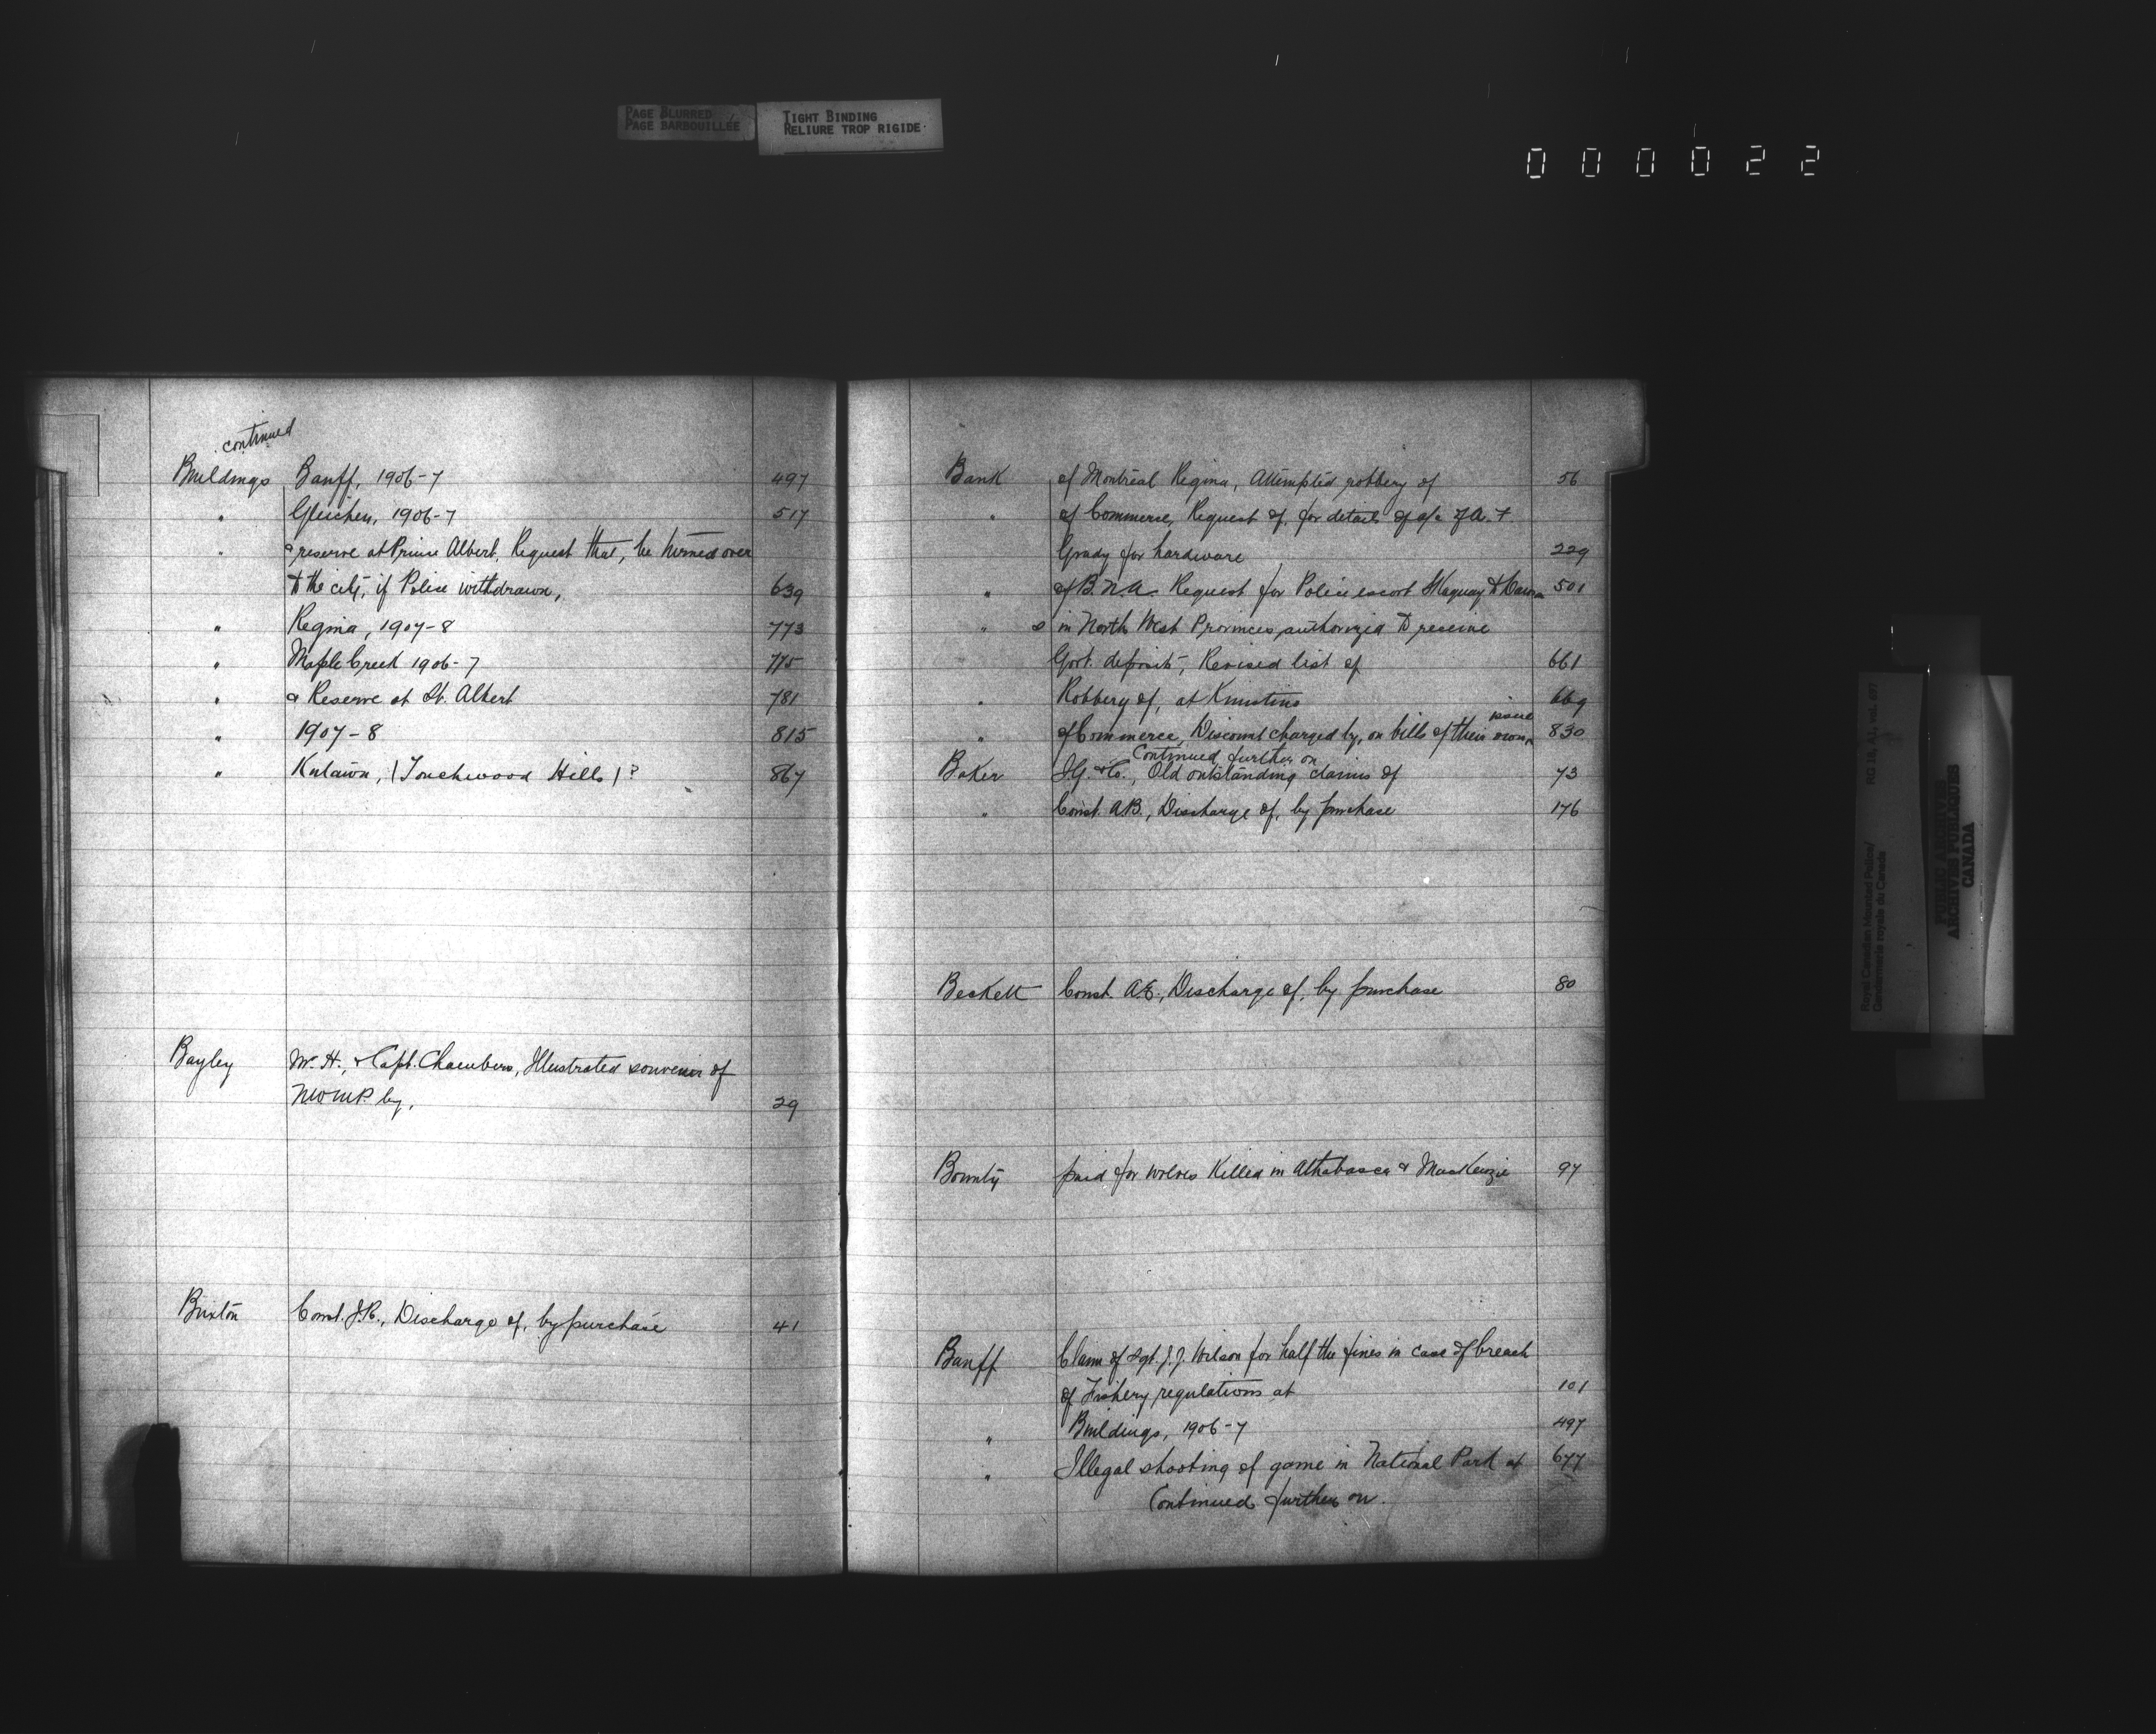 PAGE BLURRED
PAGE BARBOUILLÉE
TIGHT BINDING
RELIURE TROP RIGIDE
000022
continued
Buildings Banff, 1906-7 497
" Gleichen, 1906-7 517
" & reserve at Prince Albert, Request that, be turned over
to the city, if Police withdrawn, 639
" Regina, 1907-8 773
" Maple Creek 1906-7 775
" & Reserve at St. Albert 781
" 1907-8 815
" Kutawa, (Touchwood Hills)? 867
Bayley Mr. H., & Capt. Chambers, Illustrated souvenir of
NWMP. by, 29
Buxton Const. J.R., Discharge of, by purchase 41
Bank of Montreal Regina, Attempted robbery of 56
" of Commerce, Request of, for details of a/c of A. F.
Grady for hardware 229
" of B.N.A. Request for Police escort Skaguay to Dawson 501
" s in North West Provinces authorized to receive
Govt. deposits, Revised list of 661
" Robbery of, at Kinistino 669
" of Commerce, Discount charged by, on bills of their own issue 830
Continued further on
Baker I.G. & Co., Old outstanding claims of 73
" Const. A.B., Discharge of, by purchase 176
Beckett Const. A.E., Discharge of, by purchase 80
Bounty paid for wolves killed in Athabasca & MacKenzie 97
Banff Claim of Sgt. J.J. Wilson for half the fines in case of breach
of Fishery regulations at 101
" Buildings, 1906-7 497
" Illegal shooting of game in National Park at 677
Continued further on.
Royal Canadian Mounted Police/
Gendarmerie royale du Canada
RG 18, A1, vol.
PUBLIC ARCHIVES
ARCHIVES PUBLIQUES
CANADA